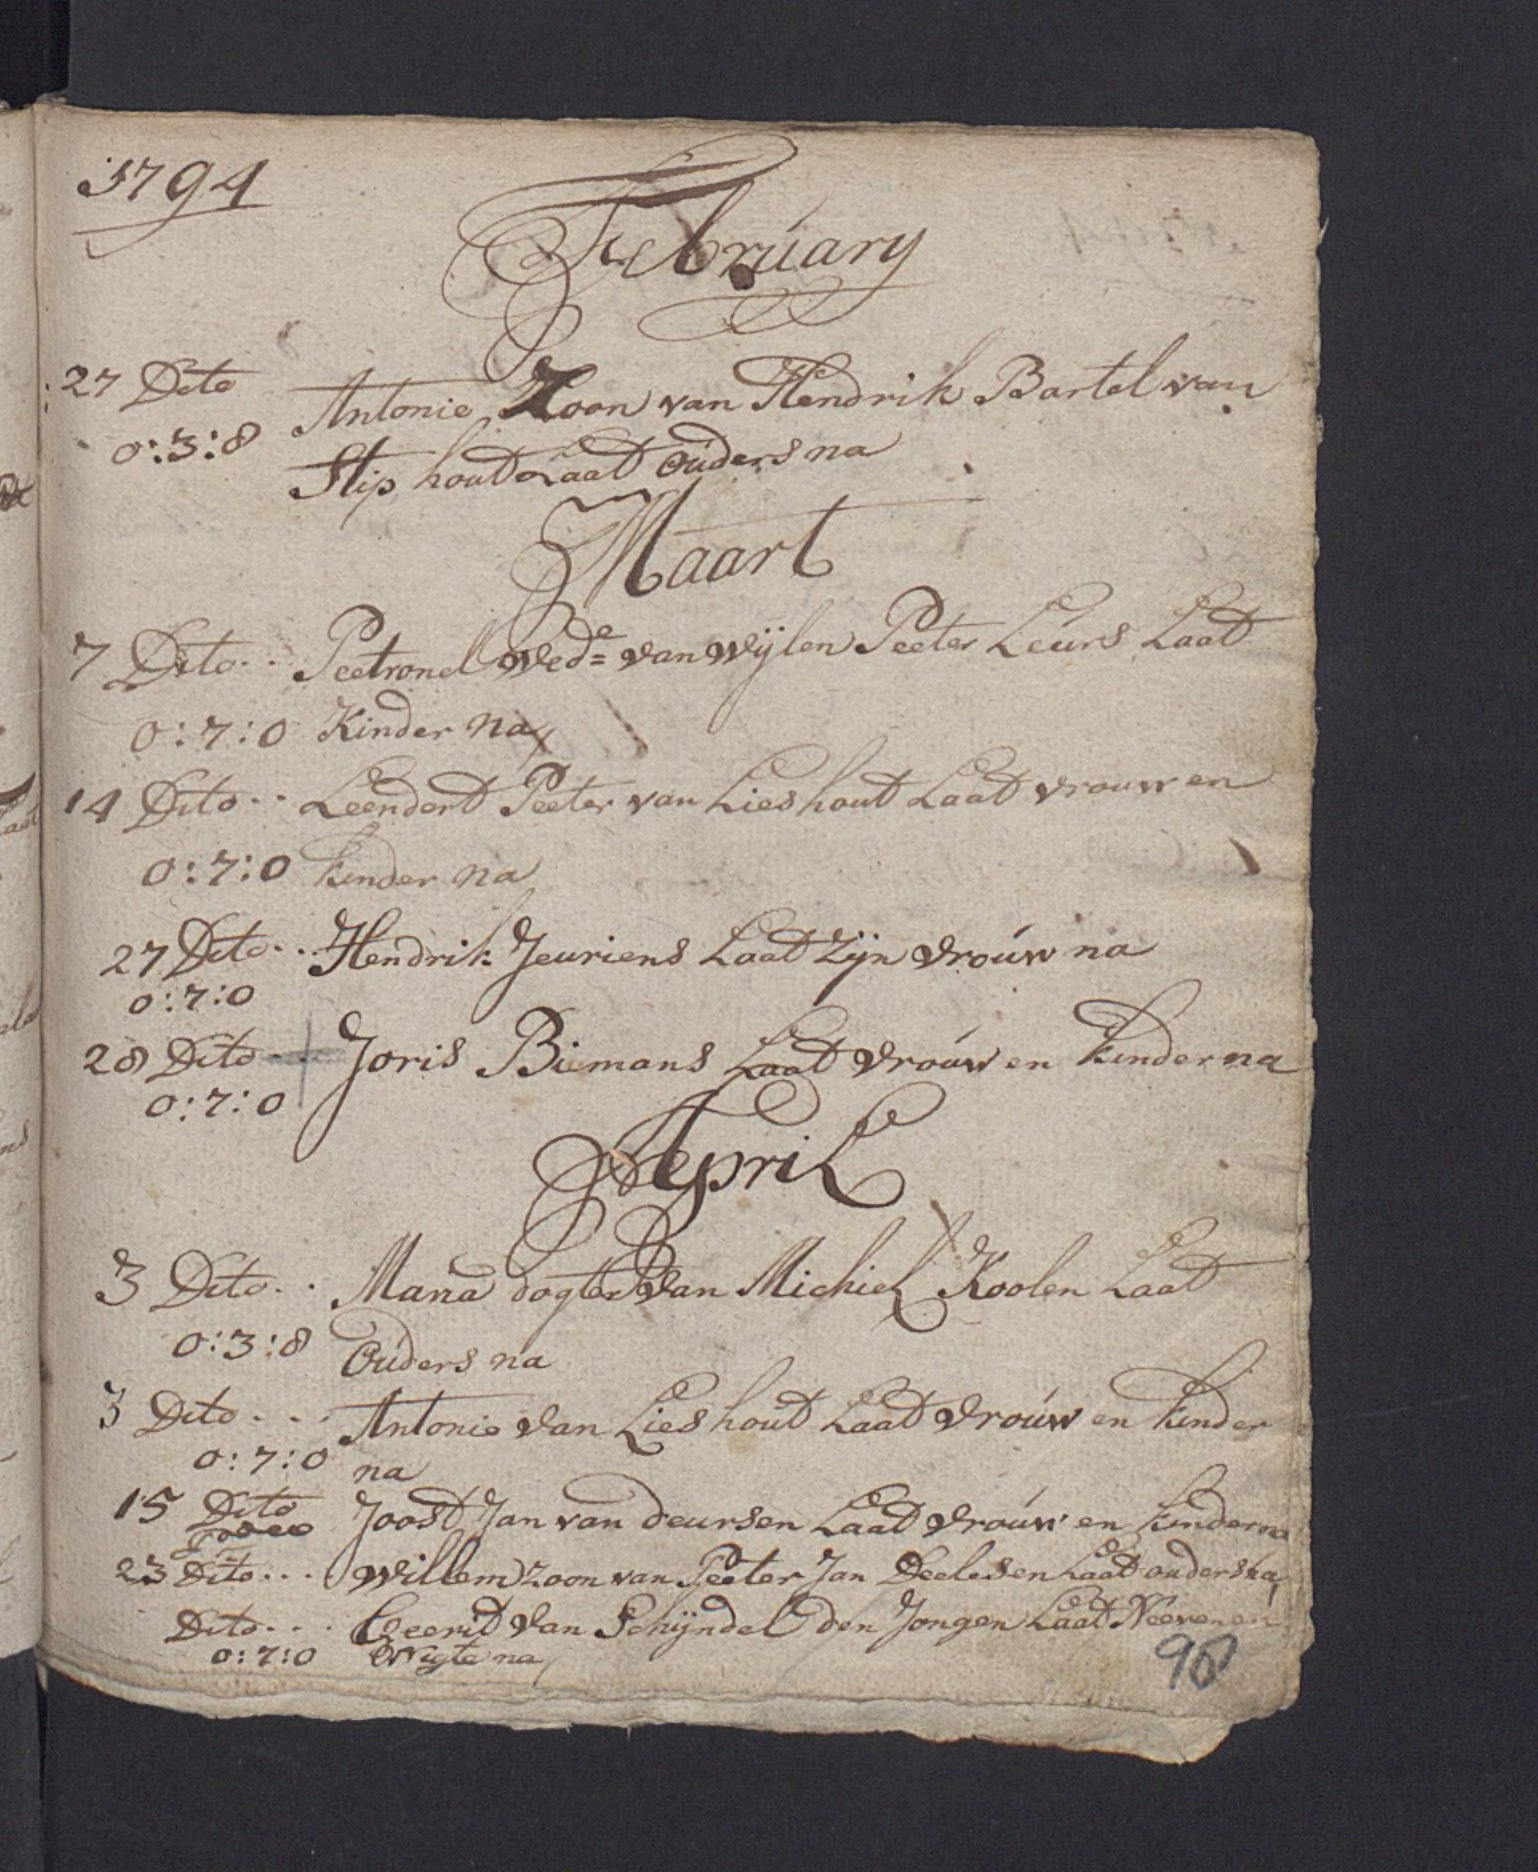 1794
February
27 Dito Antonie Zoon van Hendrik Bartel van
0:3:8 Stiphout Laat ouders na
Maart
7 Dito.. Peetronel Wede= van Wijlen Peeter Leurs Laat
0:7:0 Kinder na
14 Dito.. Leendert Peeter van Lieshout Laat vrouw en
0:7:0 kinder na
27 Dito.. Hendrik Jeuriens Laat Zijn vrouw na
0:7:0
28 Dito.. Joris Biemans Laat vrouw en kinder na
0:7:0
April
3 Dito.. Maria dogter van Michiel Koolen Laat
0:3:8 Ouders na
3 Dito... Antonie van Lieshout Laat vrouw en kinder
0:7:0 na
15 Dito Joost Jan van deursen Laat vrouw en kinder na
23 Dito... Willem zoon van Peeter Jan Deelesen Laat ouders na
Dito... Geerit van Schijndel den Jongen Laat Neeven en
0:7:0 Nigte na
90